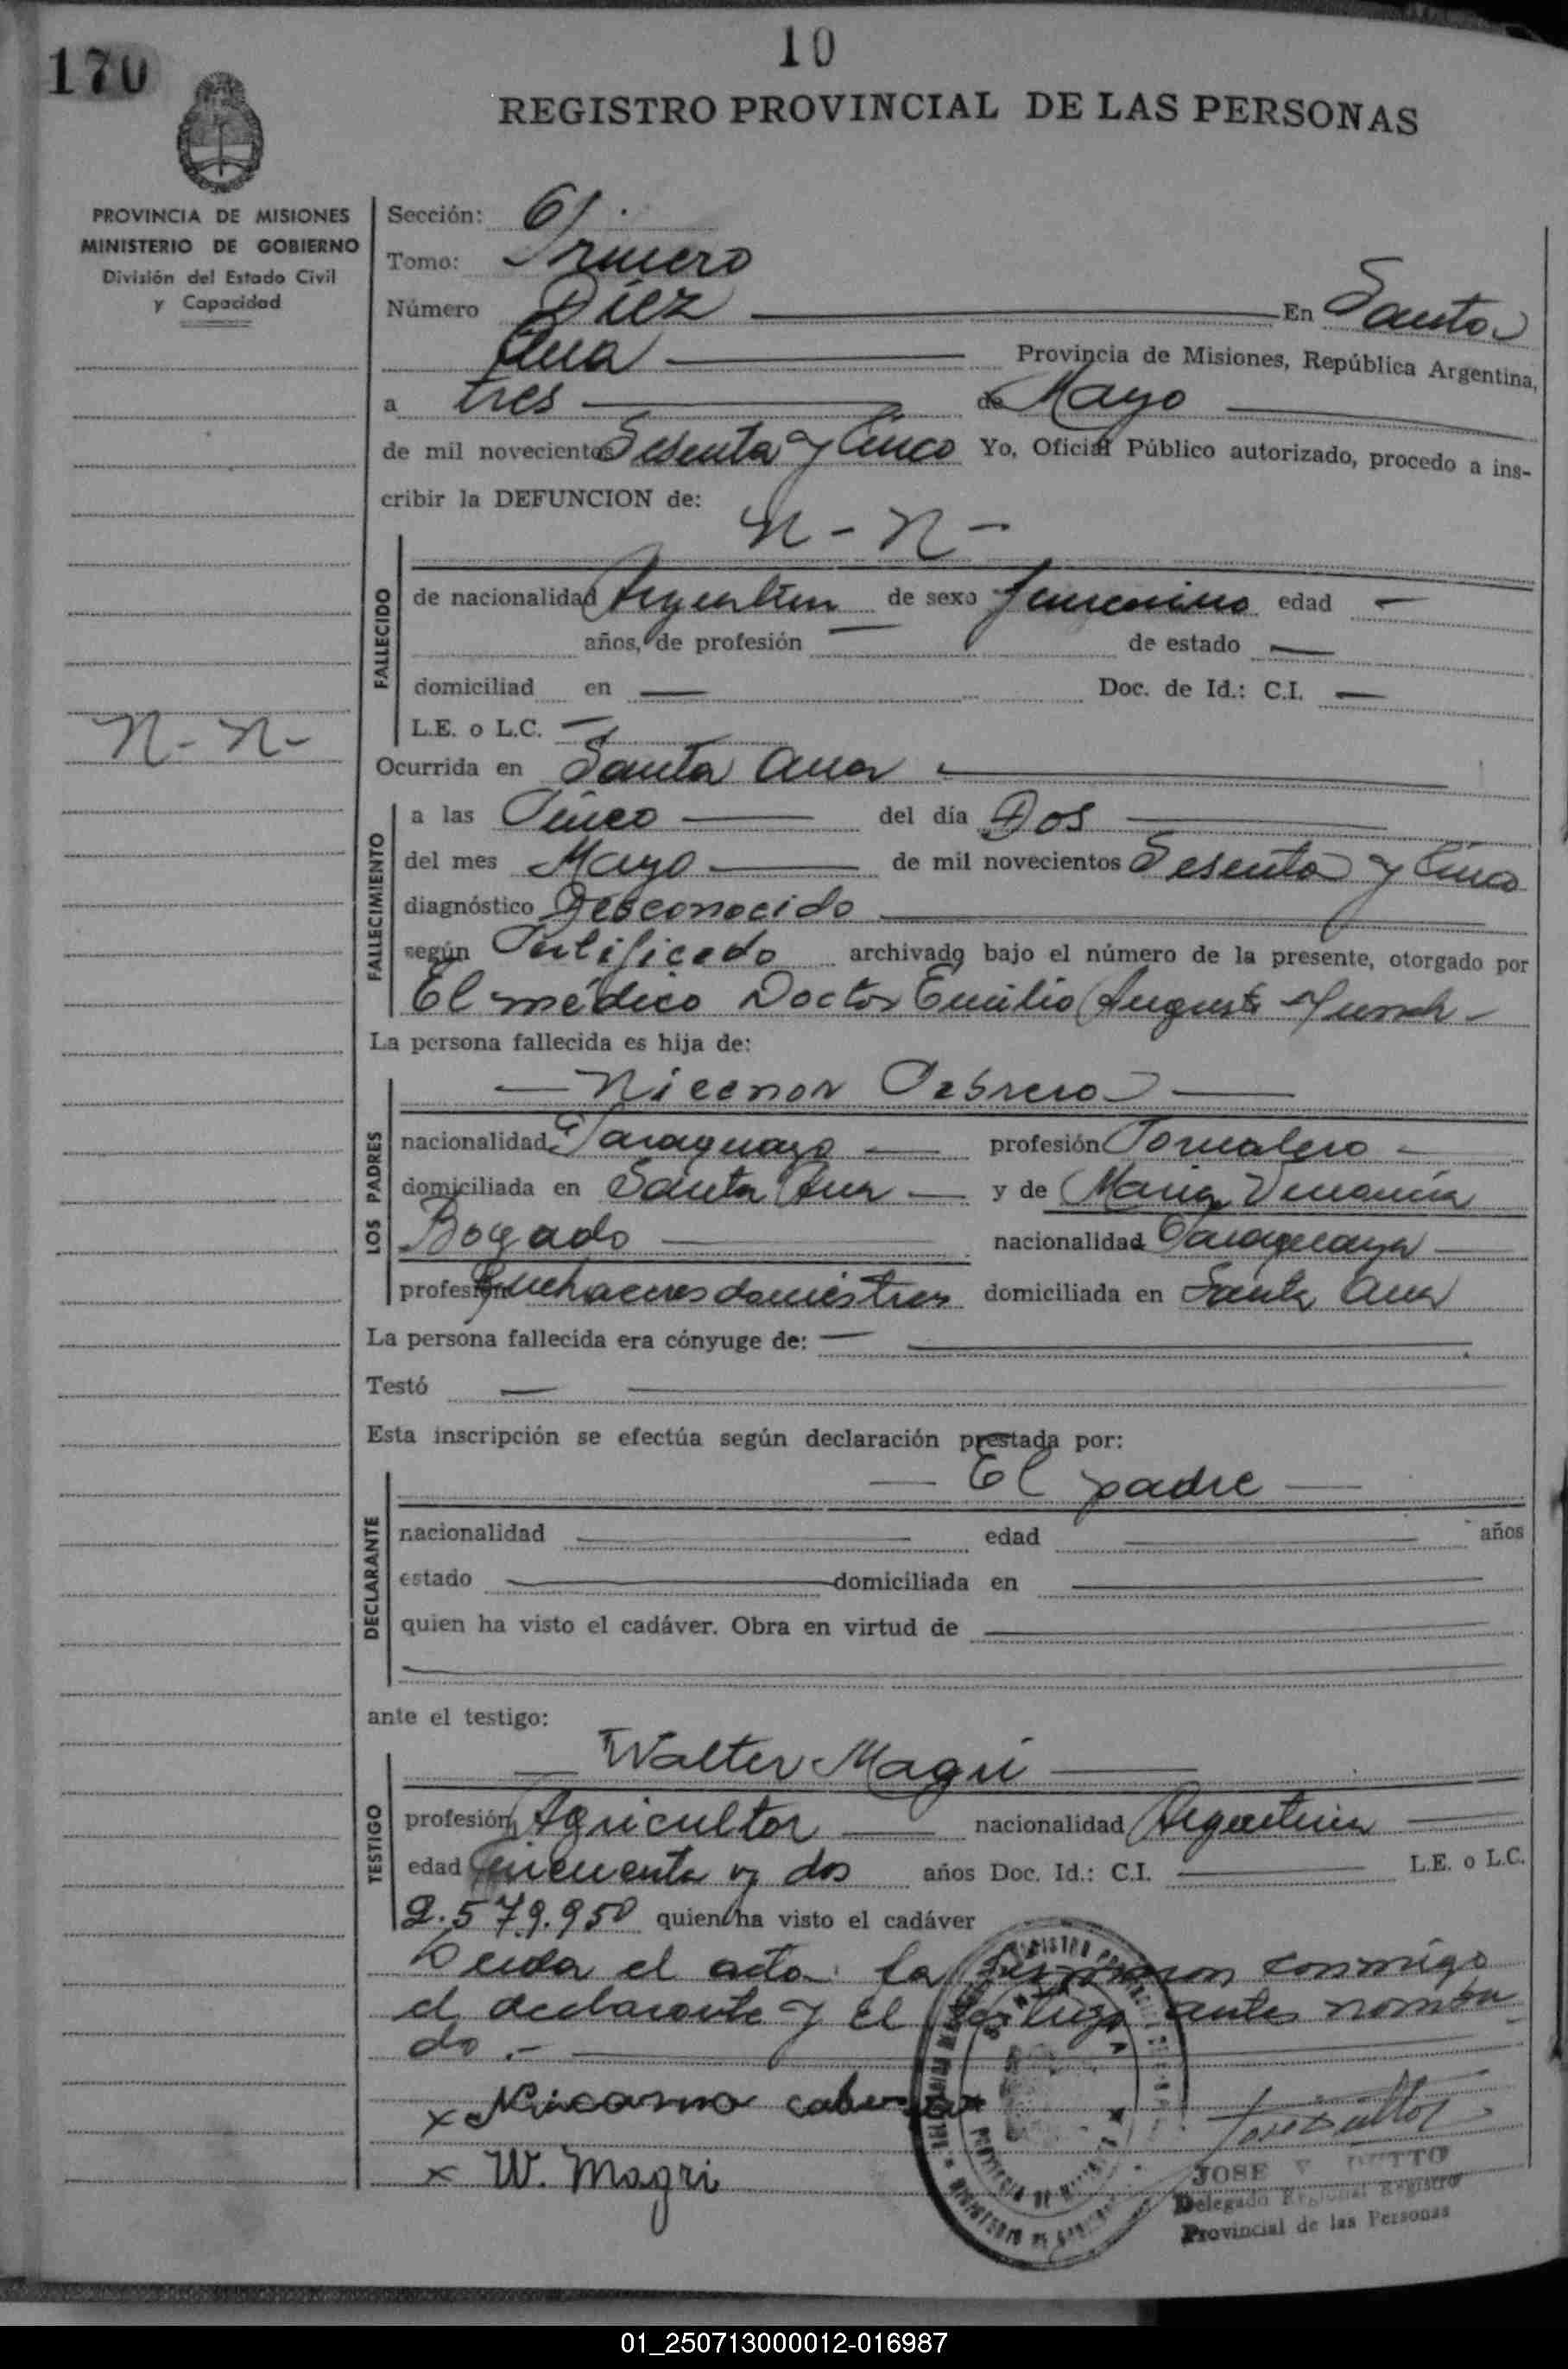 170
10
REGISTRO PROVINCIAL DE LAS PERSONAS
PROVINCIA DE MISIONES
MINISTERIO DE GOBIERNO
División del Estado Civil
y Capacidad
Sección: 6
Tomo: Primero
Número Diez En Santa
Ana Provincia de Misiones, República Argentina,
a tres de Mayo
de mil novecientos Sesenta y Cinco Yo, Oficial Público autorizado, procedo a ins-
cribir la DEFUNCION de:
N - N -
FALLECIDO
de nacionalidad Argentina de sexo femenino edad —
años, de profesión — de estado —
domiciliad en — Doc. de Id.: C.I. —
L.E. o L.C. —
N - N -
Ocurrida en Santa Ana
FALLECIMIENTO
a las Cinco del día Dos
del mes Mayo de mil novecientos Sesenta y Cinco
diagnóstico Desconocido
según Certificado archivado bajo el número de la presente, otorgado por
El médico Doctor Emilio Augusto
La persona fallecida es hija de:
— Nicanor Cabrera —
LOS PADRES
nacionalidad Paraguaya — profesión Jornalero —
domiciliada en Santa Ana — y de Maria Venancia
Bogado nacionalidad Paraguaya —
profesión Quehaceres domesticos domiciliada en Santa Ana
La persona fallecida era cónyuge de: —
Testó —
Esta inscripción se efectúa según declaración prestada por:
— El padre —
DECLARANTE
nacionalidad edad años
estado domiciliada en
quien ha visto el cadáver. Obra en virtud de
ante el testigo:
— Walter Magri —
TESTIGO
profesión Agricultor nacionalidad Argentina
edad Cincuenta y dos años Doc. Id.: C.I. L.E. o L.C.
2.579.950 quien ha visto el cadáver
Leida el acta la firmaron conmigo
el declarante y el testigo antes nombra
do.-
x Nicanor cabrera
x W. Magri
JOSE V DUTTO
Delegado Regional Registro
Provincial de las Personas
01_250713000012-016987